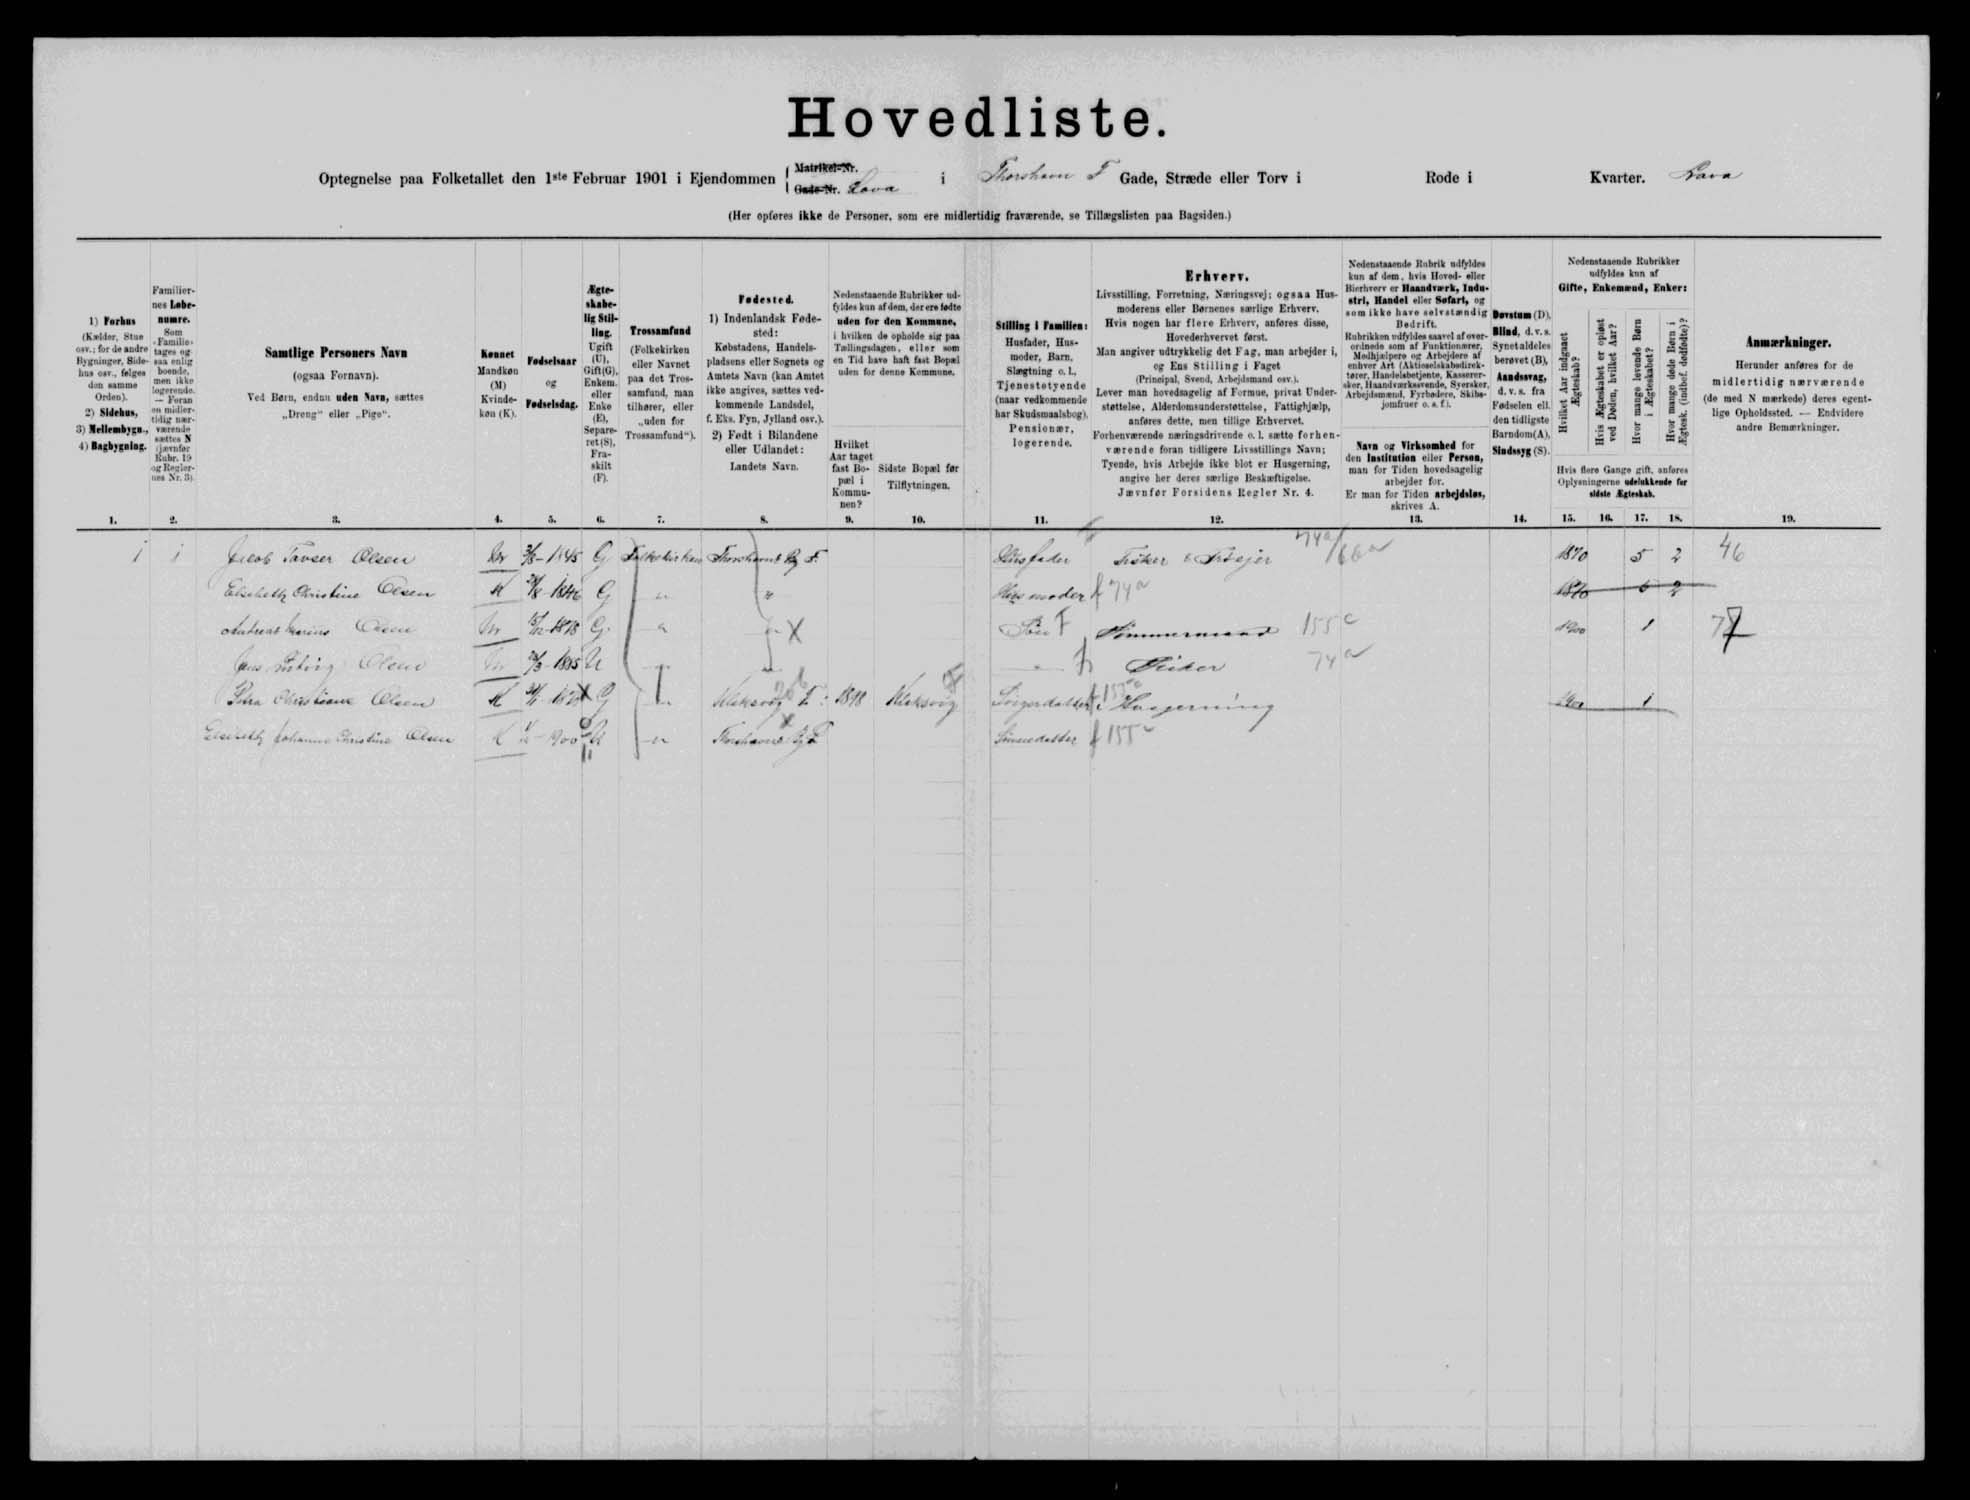 Hovedliste.
Optegnelse paa Folketallet den 1ste Februar 1901 i Ejendommen { Matrikel-Nr. Gade-Nr. i Thorshavn F Gade, Stræde eller Torv i Rode i Kvarter.
(Her opføres ikke de Personer, som ere midlertidig fraværende, se Tillægslisten paa Bagsiden.)
1) Forhus
(Kælder, Stue
osv.; for de andre
Bygninger, Side-
hus osv., følges
den samme
Orden).
2) Sidehus,
3) Mellembygn.,
4) Bagbygning.
Familier-
nes Løbe-
numre.
Som
»Familie«
tages og-
saa enlig
boende,
men ikke
logerende.
— Foran
en midler-
tidig nær-
værende
sættes N
(jævnfør
Rubr. 19
og Regler-
nes Nr. 3).
Samtlige Personers Navn
(ogsaa Fornavn).
Ved Børn, endnu uden Navn, sættes
„Dreng“ eller „Pige“.
Kønnet
Mandkøn
(M)
Kvinde-
køn (K).
Fødselsaar
og
Fødselsdag.
Ægte-
skabe-
lig Stil-
ling.
Ugift
(U),
Gift(G),
Enkem.
eller
Enke
(E),
Separe-
ret (S),
Fra-
skilt
(F).
Trossamfund
(Folkekirken
eller Navnet
paa det Tros-
samfund, man
tilhører, eller
„uden for
Trossamfund“).
Fødested.
1) Indenlandsk Føde-
sted:
Købstadens, Handels-
pladsens eller Sognets og
Amtets Navn (kan Amtet
ikke angives, sættes ved-
kommende Landsdel,
f. Eks. Fyn, Jylland osv.).
2) Født i Bilandene
eller Udlandet:
Landets Navn.
Nedenstaaende Rubrikker ud-
fyldes kun af dem, der ere fødte
uden for den Kommune,
i hvilken de opholde sig paa
Tællingsdagen, eller som
en Tid have haft fast Bopæl
uden for denne Kommune.
Hvilket
Aar taget
fast Bo-
pæl i
Kommu-
nen?
Sidste Bopæl før
Tilflytningen.
Stilling i Familien:
Husfader, Hus-
moder, Barn,
Slægtning o. l.,
Tjenestetyende
(naar vedkommende
har Skudsmaalsbog),
Pensionær,
logerende.
Erhverv.
Livsstilling, Forretning, Næringsvej; ogsaa Hus-
moderens eller Børnenes særlige Erhverv.
Hvis nogen har flere Erhverv, anføres disse,
Hovederhvervet først.
Man angiver udtrykkelig det Fag, man arbejder i,
og Ens Stilling i Faget
(Principal, Svend, Arbejdsmand osv.).
Lever man hovedsagelig af Formue, privat Under-
støttelse, Alderdomsunderstøttelse, Fattighjælp,
anføres dette, men tillige Erhvervet.
Forhenværende næringsdrivende o. l. sætte forhen-
værende foran tidligere Livsstillings Navn;
Tyende, hvis Arbejde ikke blot er Husgerning,
angive her deres særlige Beskæftigelse.
Jævnfør Forsidens Regler Nr. 4.
Nedenstaaende Rubrik udfyldes
kun af dem, hvis Hoved- eller
Bierhverv er Haandværk, Indu-
stri, Handel eller Søfart, og
som ikke have selvstændig
Bedrift.
Rubrikken udfyldes saavel af over-
ordnede som af Funktionærer,
Medhjælpere og Arbejdere af
enhver Art (Aktieselskabsdirek-
tører, Handelsbetjente, Kasserer-
sker, Haandværkssvende, Syersker,
Arbejdsmænd, Fyrbødere, Skibs-
jomfruer o. s. f.).
Navn og Virksomhed for
den Institution eller Person,
man for Tiden hovedsagelig
arbejder for.
Er man for Tiden arbejdsløs,
skrives A.
Døvstum (D),
Blind, d. v. s.
Synet aldeles
berøvet (B),
Aandssvag,
d. v. s. fra
Fødselen ell.
den tidligste
Barndom (A),
Sindssyg (S).
Nedenstaaende Rubrikker
udfyldes kun af
Gifte, Enkemænd, Enker:
Hvilket Aar indgaaet
Ægteskab?
Hvis Ægteskabet er opløst
ved Døden, hvilket Aar?
Hvor mange levende Børn
i Ægteskabet?
Hvor mange døde Børn i
Ægtesk. (indbef. dødfødte)?
Hvis flere Gange gift, anføres
Oplysningerne udelukkende for
sidste Ægteskab.
Anmærkninger.
Herunder anføres for de
midlertidig nærværende
(de med N mærkede) deres egent-
lige Opholdssted. — Endvidere
andre Bemærkninger.
1. 2. 3. 4. 5. 6. 7. 8. 9. 10. 11. 12. 13. 14. 15. 16. 17. 18. 19.
1 1 Jacob Olsen M 1845 G Folkekirken Thorshavn F. Husfader Fisker & 74a 66a 1870 5 2 46
Elsebeth Christine Olsen K 1846 G " " Husmoder f 74a 1870 5 2
Andreas Olsen M 1878 G " " X Søn F Tømmermand 155c 1900 1 77
Jens Olsen M 1885 U " " " Fisker 74a
Petra Christiane Olsen K G " Klaksvig F. 1898 Klaksvig Svigerdatter f 155c Husgerning 1900 1
Elsebeth Johanne Christine Olsen K 1900 U " Thorshavn F Sønnedatter f 155c